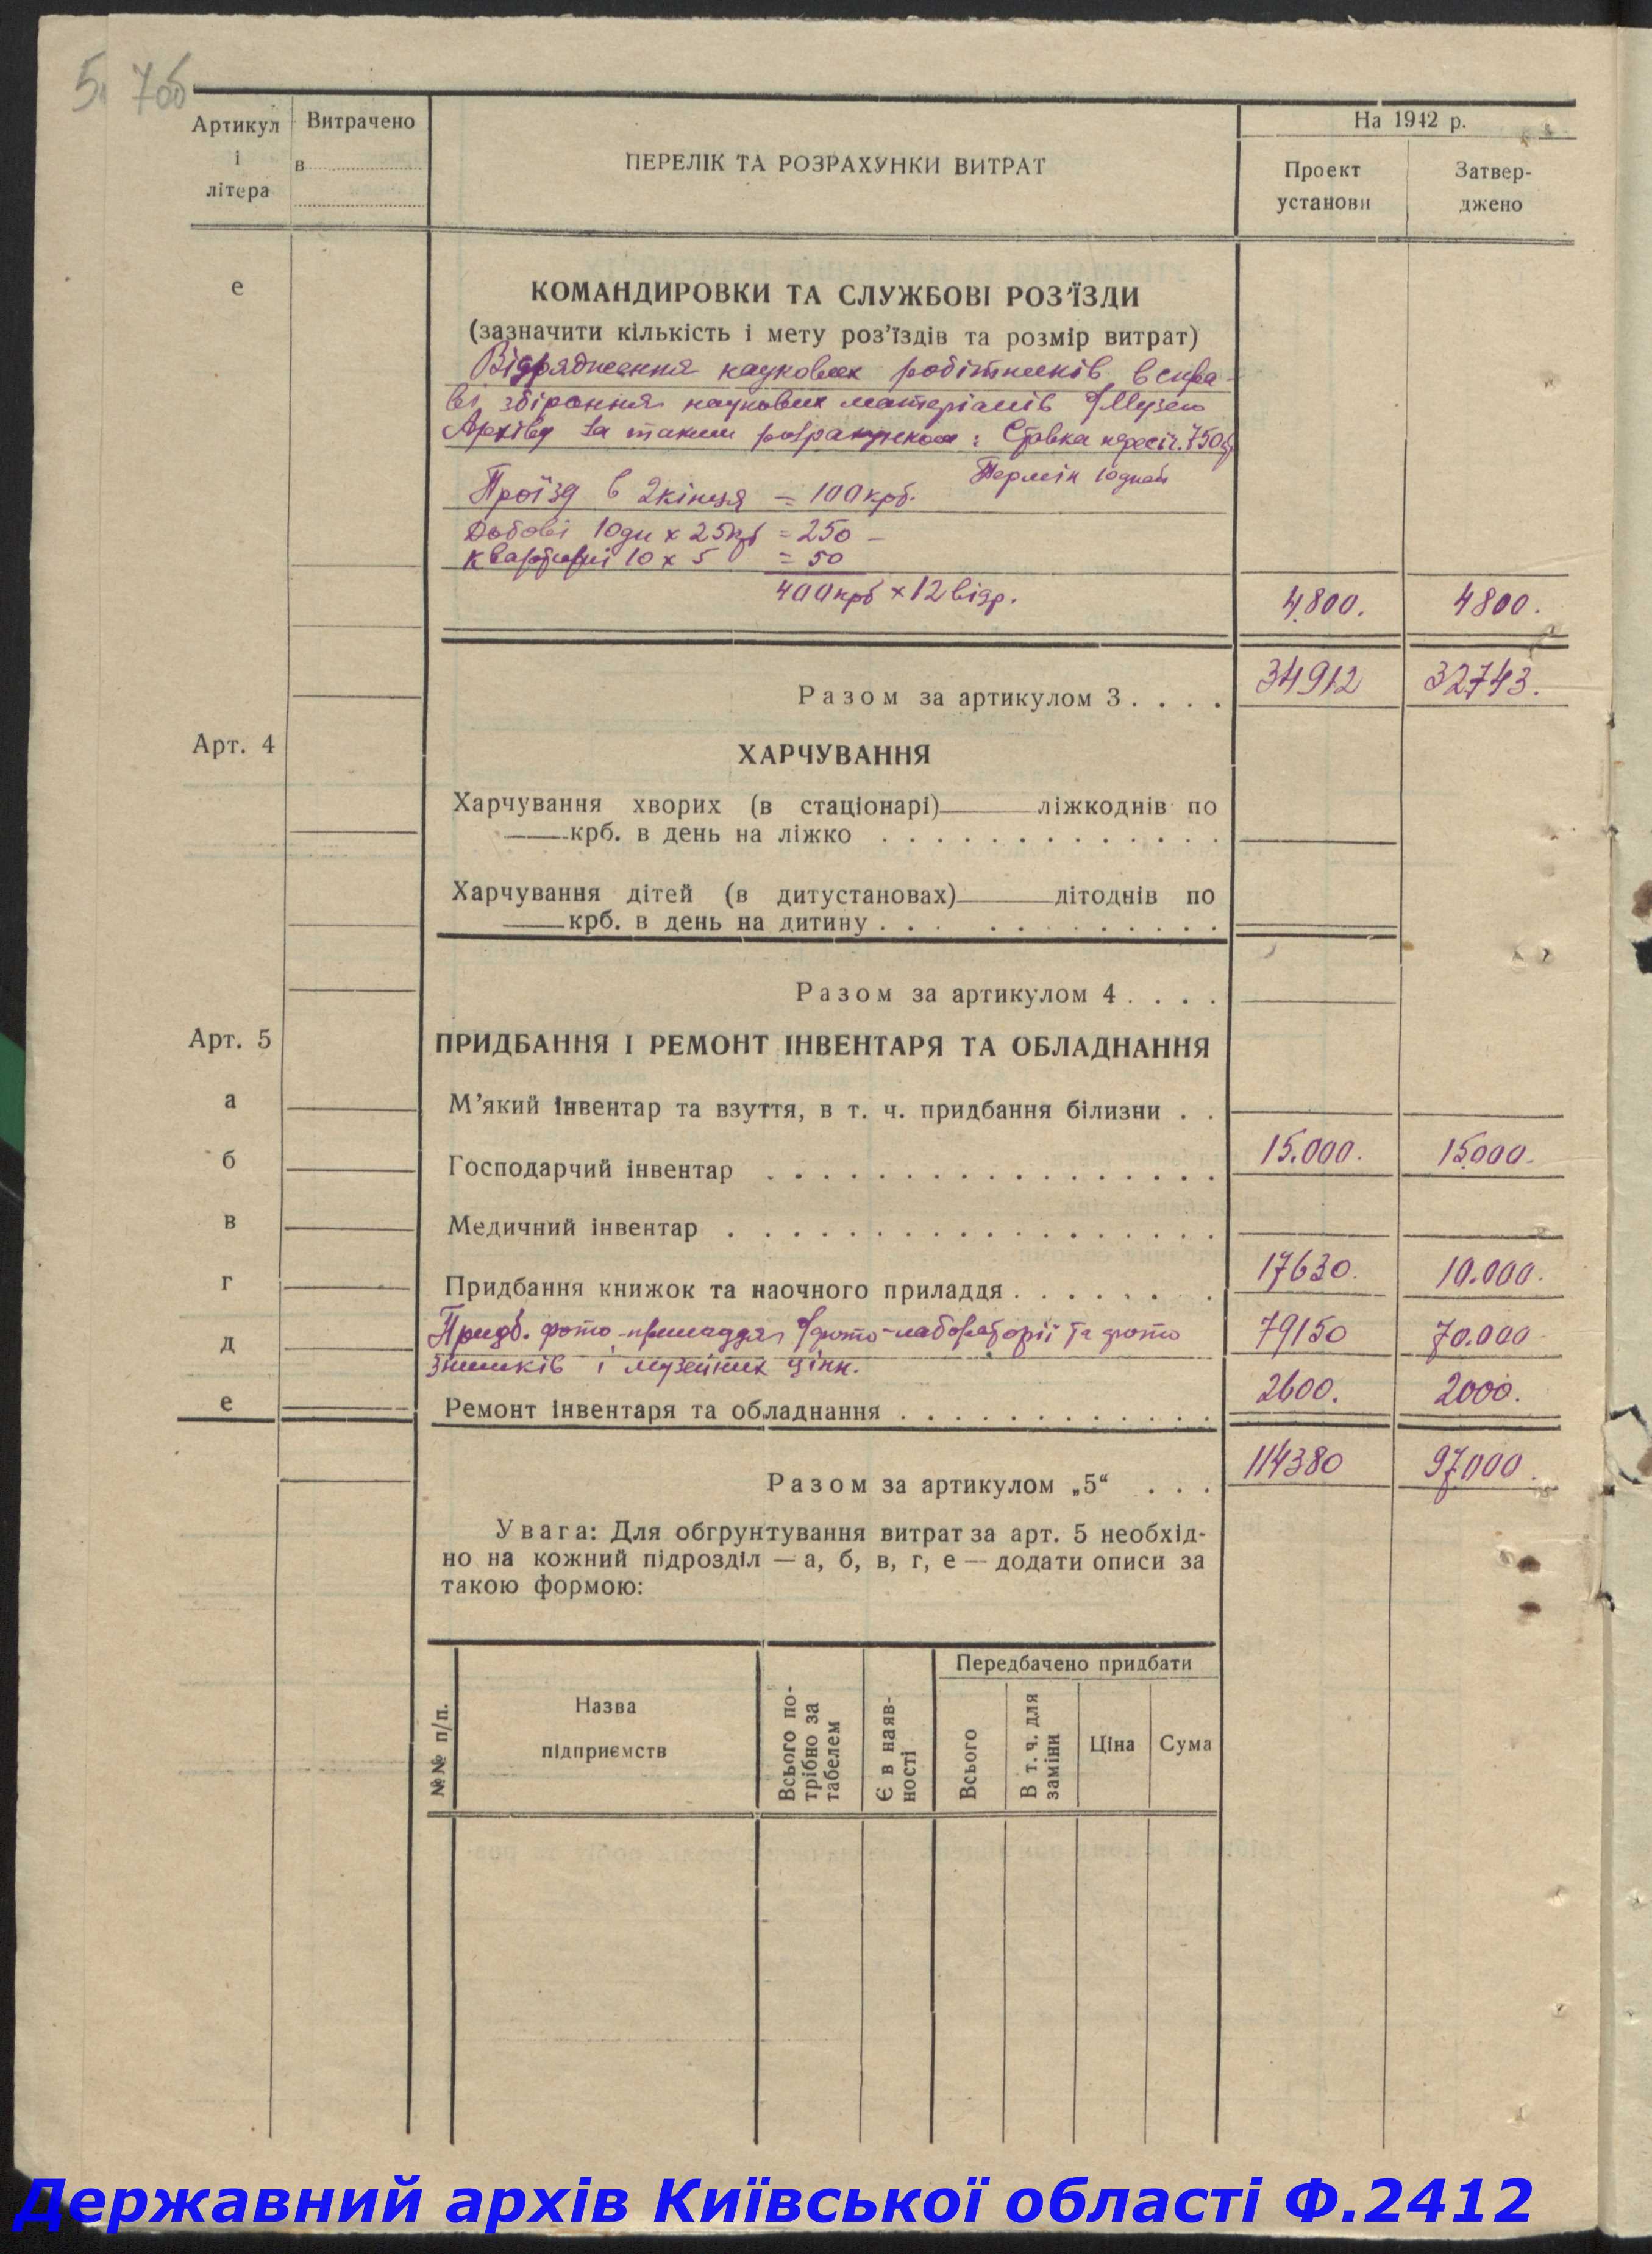 Артикул і літера
Витрачено
в
ПЕРЕЛІК ТА РОЗРАХУНКИ ВИТРАТ
На 1942 р.
Проект установи
Затвер-
джено
е
КОМАНДИРОВКИ ТА СЛУЖБОВІ РОЗ'ЇЗДИ
(зазначити кількість і мету роз'їздів та розмір витрат)
Відрядження наукових робітників в спра-
ві збірання наукових матеріалів Музею
Архіву за таким розрахунком: Ставка пересіч. 750
Термін 10 днів
Проїзд в 2 кінця = 100 крб.
Добові 10 дн x 25 крб = 250 –
квартирні 10 x 5 = 50
400 крб x 12 відр.
4.800. 4800.
Разом за артикулом 3 . . . . 34912 32743.
Арт. 4
ХАРЧУВАННЯ
Харчування хворих (в стаціонарі) ліжкоднів по
крб. в день на ліжко . . . . . . . . . . . . .
Харчування дітей (в дитустановах) дітоднів по
крб. в день на дитину . . . . . . . . . . . .
Разом за артикулом 4 . . . .
Арт. 5
ПРИДБАННЯ І РЕМОНТ ІНВЕНТАРЯ ТА ОБЛАДНАННЯ
а М'який інвентар та взуття, в т. ч. придбання білизни . .
б Господарчий інвентар . . . . . . . . . . . . . . . . . 15.000. 15000.
в Медичний інвентар . . . . . . . . . . . . . . . . . .
г Придбання книжок та наочного приладдя . . . . . . . . 17630. 10.000.
д Придб. фото-приладдя фото-лабораторії та фото 79150 70.000
знимків і музейних цінн.
е Ремонт інвентаря та обладнання . . . . . . . . . . . . 2600. 2000.
Разом за артикулом „5“ . . . 114380 97000.
Увага: Для обгрунтування витрат за арт. 5 необхід-
но на кожний підрозділ — а, б, в, г, е — додати описи за
такою формою:
№№ п/п.
Назва
підприємств
Всього по-
трібно за
табелем
Є в наяв-
ності
Передбачено придбати
Всього
В т. ч. для
заміни
Ціна
Сума
Державний архів Київської області Ф.2412